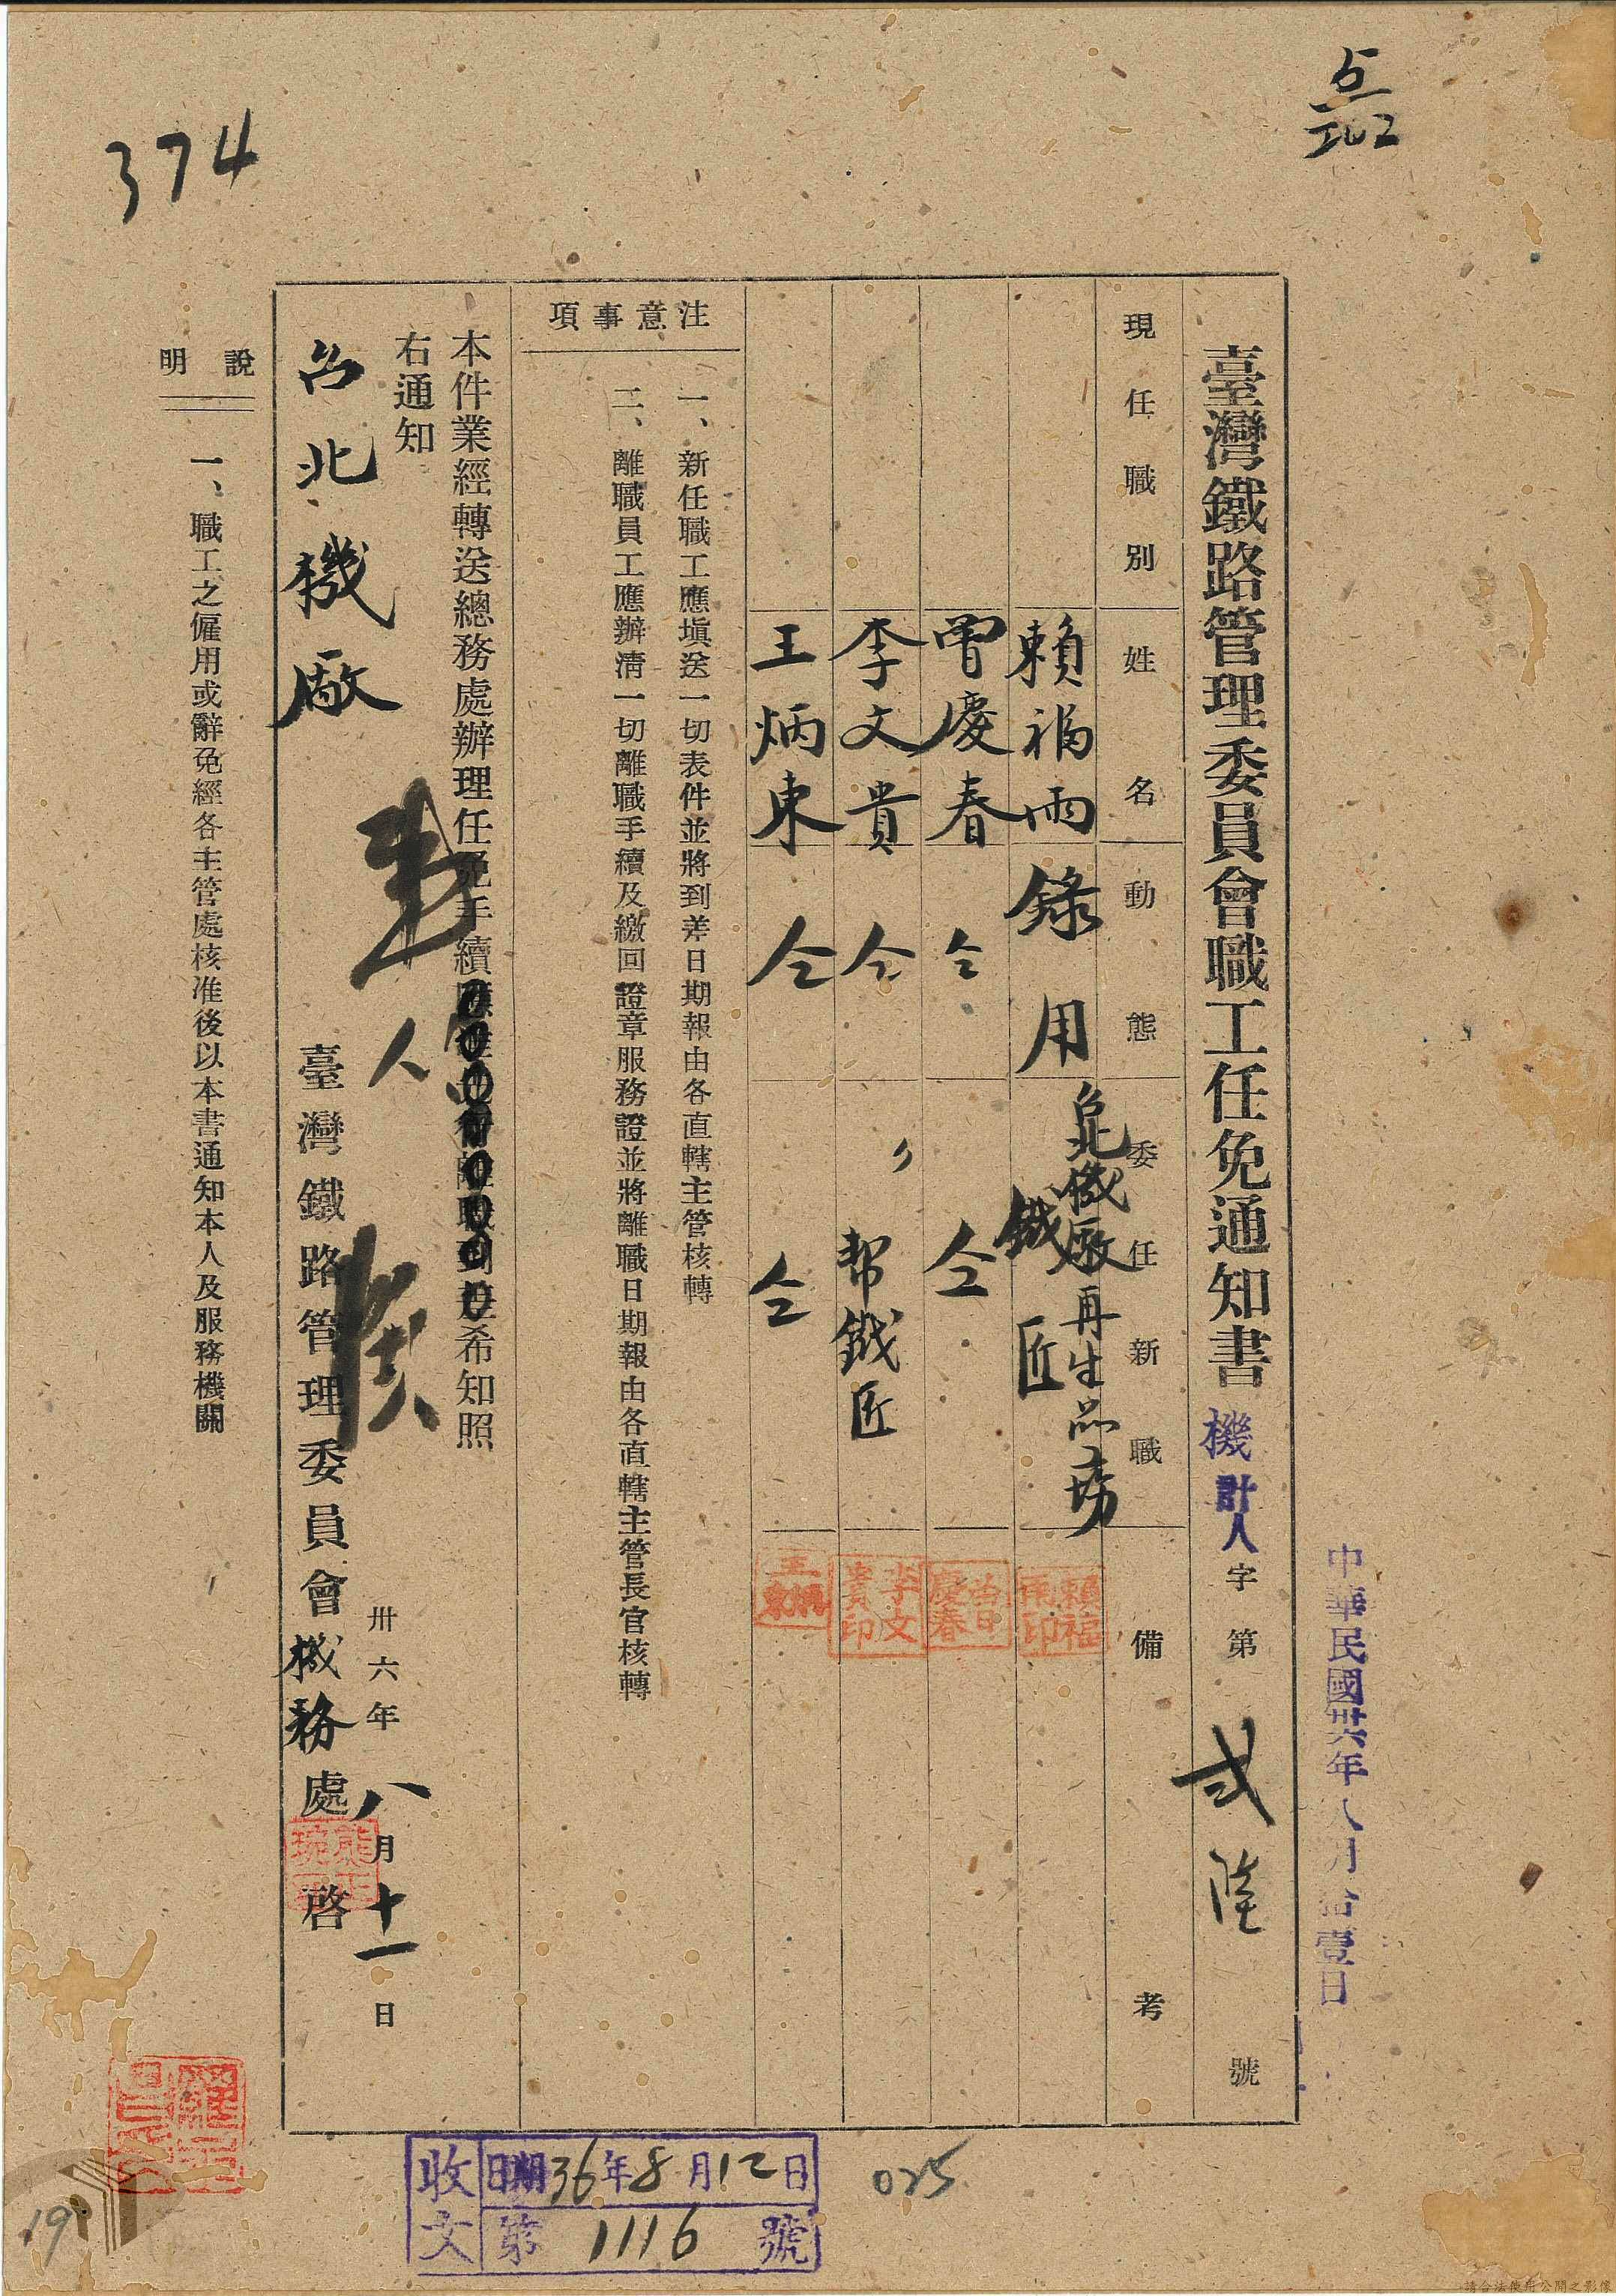 374
臺灣鐵路管理委員會職工任免通知書 機計人字第貳陸號
中華民國卅六年八月拾壹日
現任職別 姓名 動態 委任新職 備考
賴福雨 錄用 台北機廠再生品場 鐵匠
賴福雨印
曾慶春 仝 仝
曾慶春
李文貴 仝 〃 幇鐵匠
李文貴印
王炳東 仝 仝
王炳東
注意事項
一、新任職工應塡送一切表件並將到差日期報由各直轄主管核轉
二、離職員工應辦淸一切離職手續及繳回證章服務證並將離職日期報由各直轄主管長官核轉
本件業經轉送總務處辦理任免手續希知照
右通知
台北機廠
卅六年八月十一日
臺灣鐵路管理委員會機務處啓
熊正琬
說明
一、職工之僱用或辭免經各主管處核准後以本書通知本人及服務機關
收文
日期36年8月12日
第1116號
025
19
請合法使用公開之影像